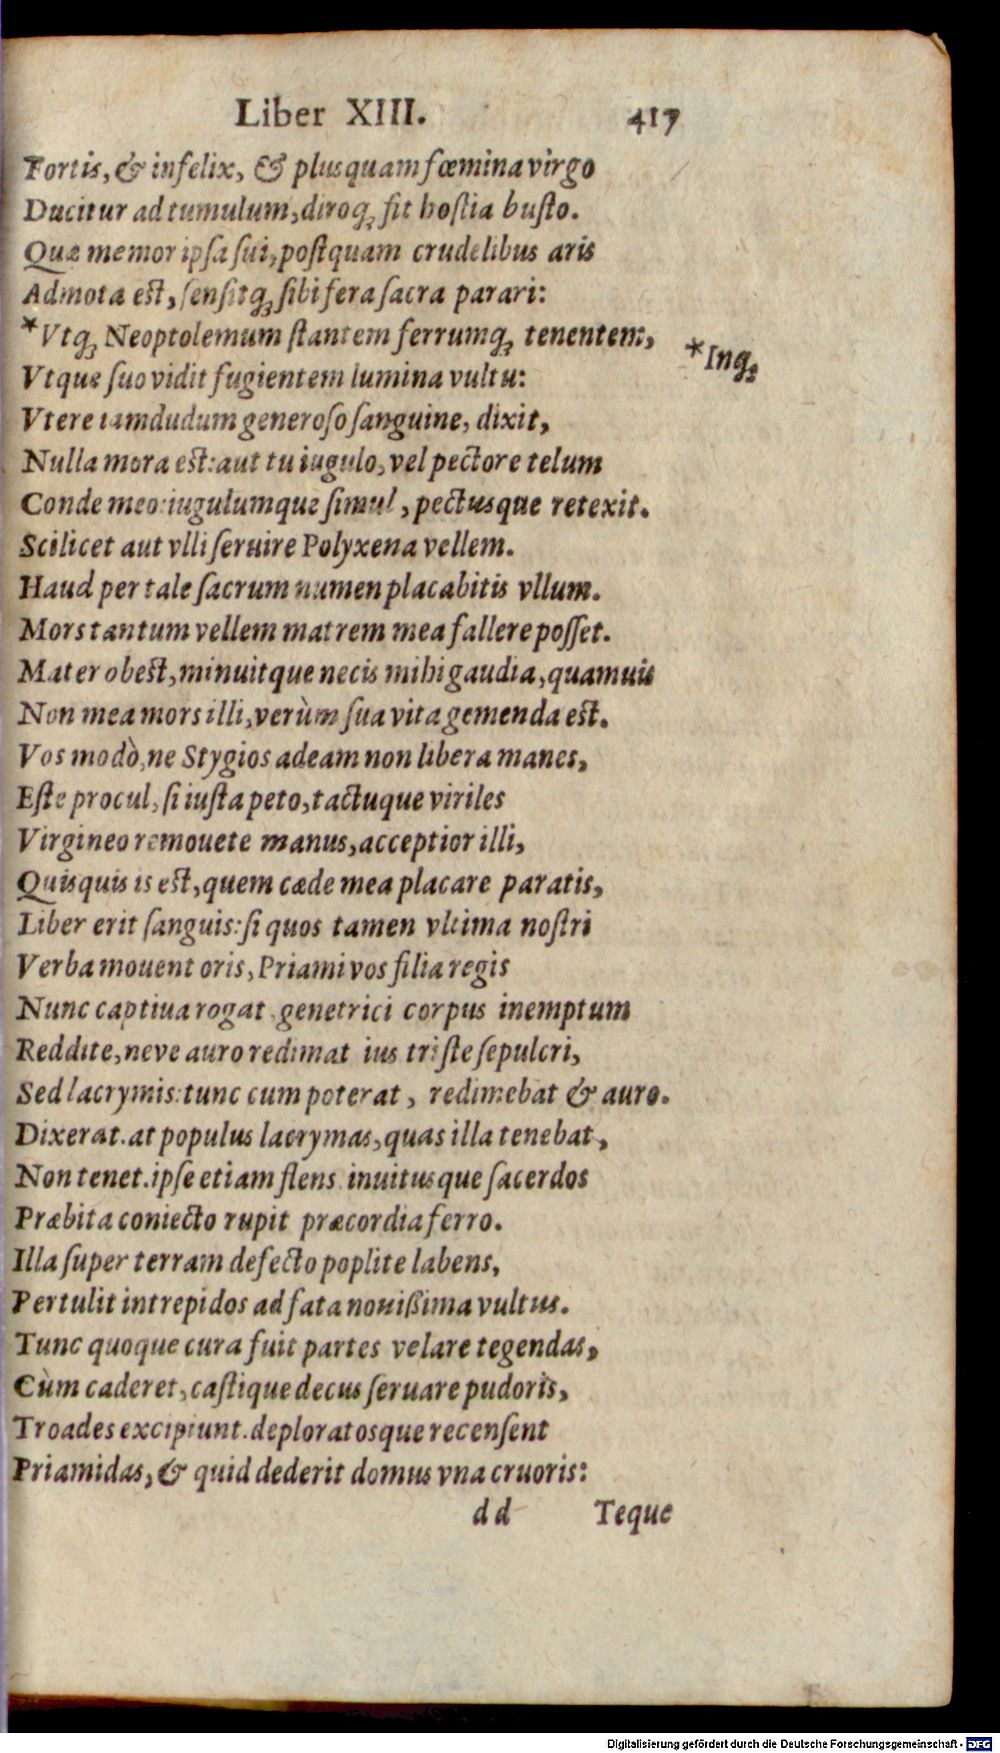 Liber XIII. 417
Fortis, & infelix, & plusquam fœmina virgo
Ducitur ad tumulum, diroq; fit hostia busto.
Quæ memor ipsa sui, postquam crudelibus aris
Admota est, sensitq; sibi fera sacra parari:
*Vtq; Neoptolemum stantem ferrumq; tenentem, *Inq;
Vtque suo vidit fugientem lumina vultu:
Vtere iamdudum generoso sanguine, dixit,
Nulla mora est: aut tu iugulo, vel pectore telum
Conde meo: iugulumque simul, pectusque retexit.
Scilicet aut vlli seruire Polyxena vellem.
Haud per tale sacrum numen placabitis vllum.
Mors tantum vellem matrem mea fallere posset.
Mater obest, minuitque necis mihi gaudia, quamuis
Non mea mors illi, verùm sua vita gemenda est.
Vos modò, ne Stygios adeam non libera manes,
Este procul, si iusta peto, tactuque viriles
Virgineo remouete manus, acceptior illi,
Quisquis is est, quem cæde mea placare paratis,
Liber erit sanguis: si quos tamen vltima nostri
Verba mouent oris, Priami vos filia regis
Nunc captiua rogat. genetrici corpus inemptum
Reddite, neve auro redimat ius triste sepulcri,
Sed lacrymis: tunc cum poterat, redimebat & auro.
Dixerat. at populus lacrymas, quas illa tenebat,
Non tenet. ipse etiam flens inuitusque sacerdos
Præbita coniecto rupit præcordia ferro.
Illa super terram defecto poplite labens,
Pertulit intrepidos ad fata nouißima vultus.
Tunc quoque cura fuit partes velare tegendas,
Cùm caderet, castique decus seruare pudoris,
Troades excipiunt. deploratosque recensent
Priamidas, & quid dederit domus vna cruoris:
dd Teque
Digitalisierung gefördert durch die Deutsche Forschungsgemeinschaft - DFG